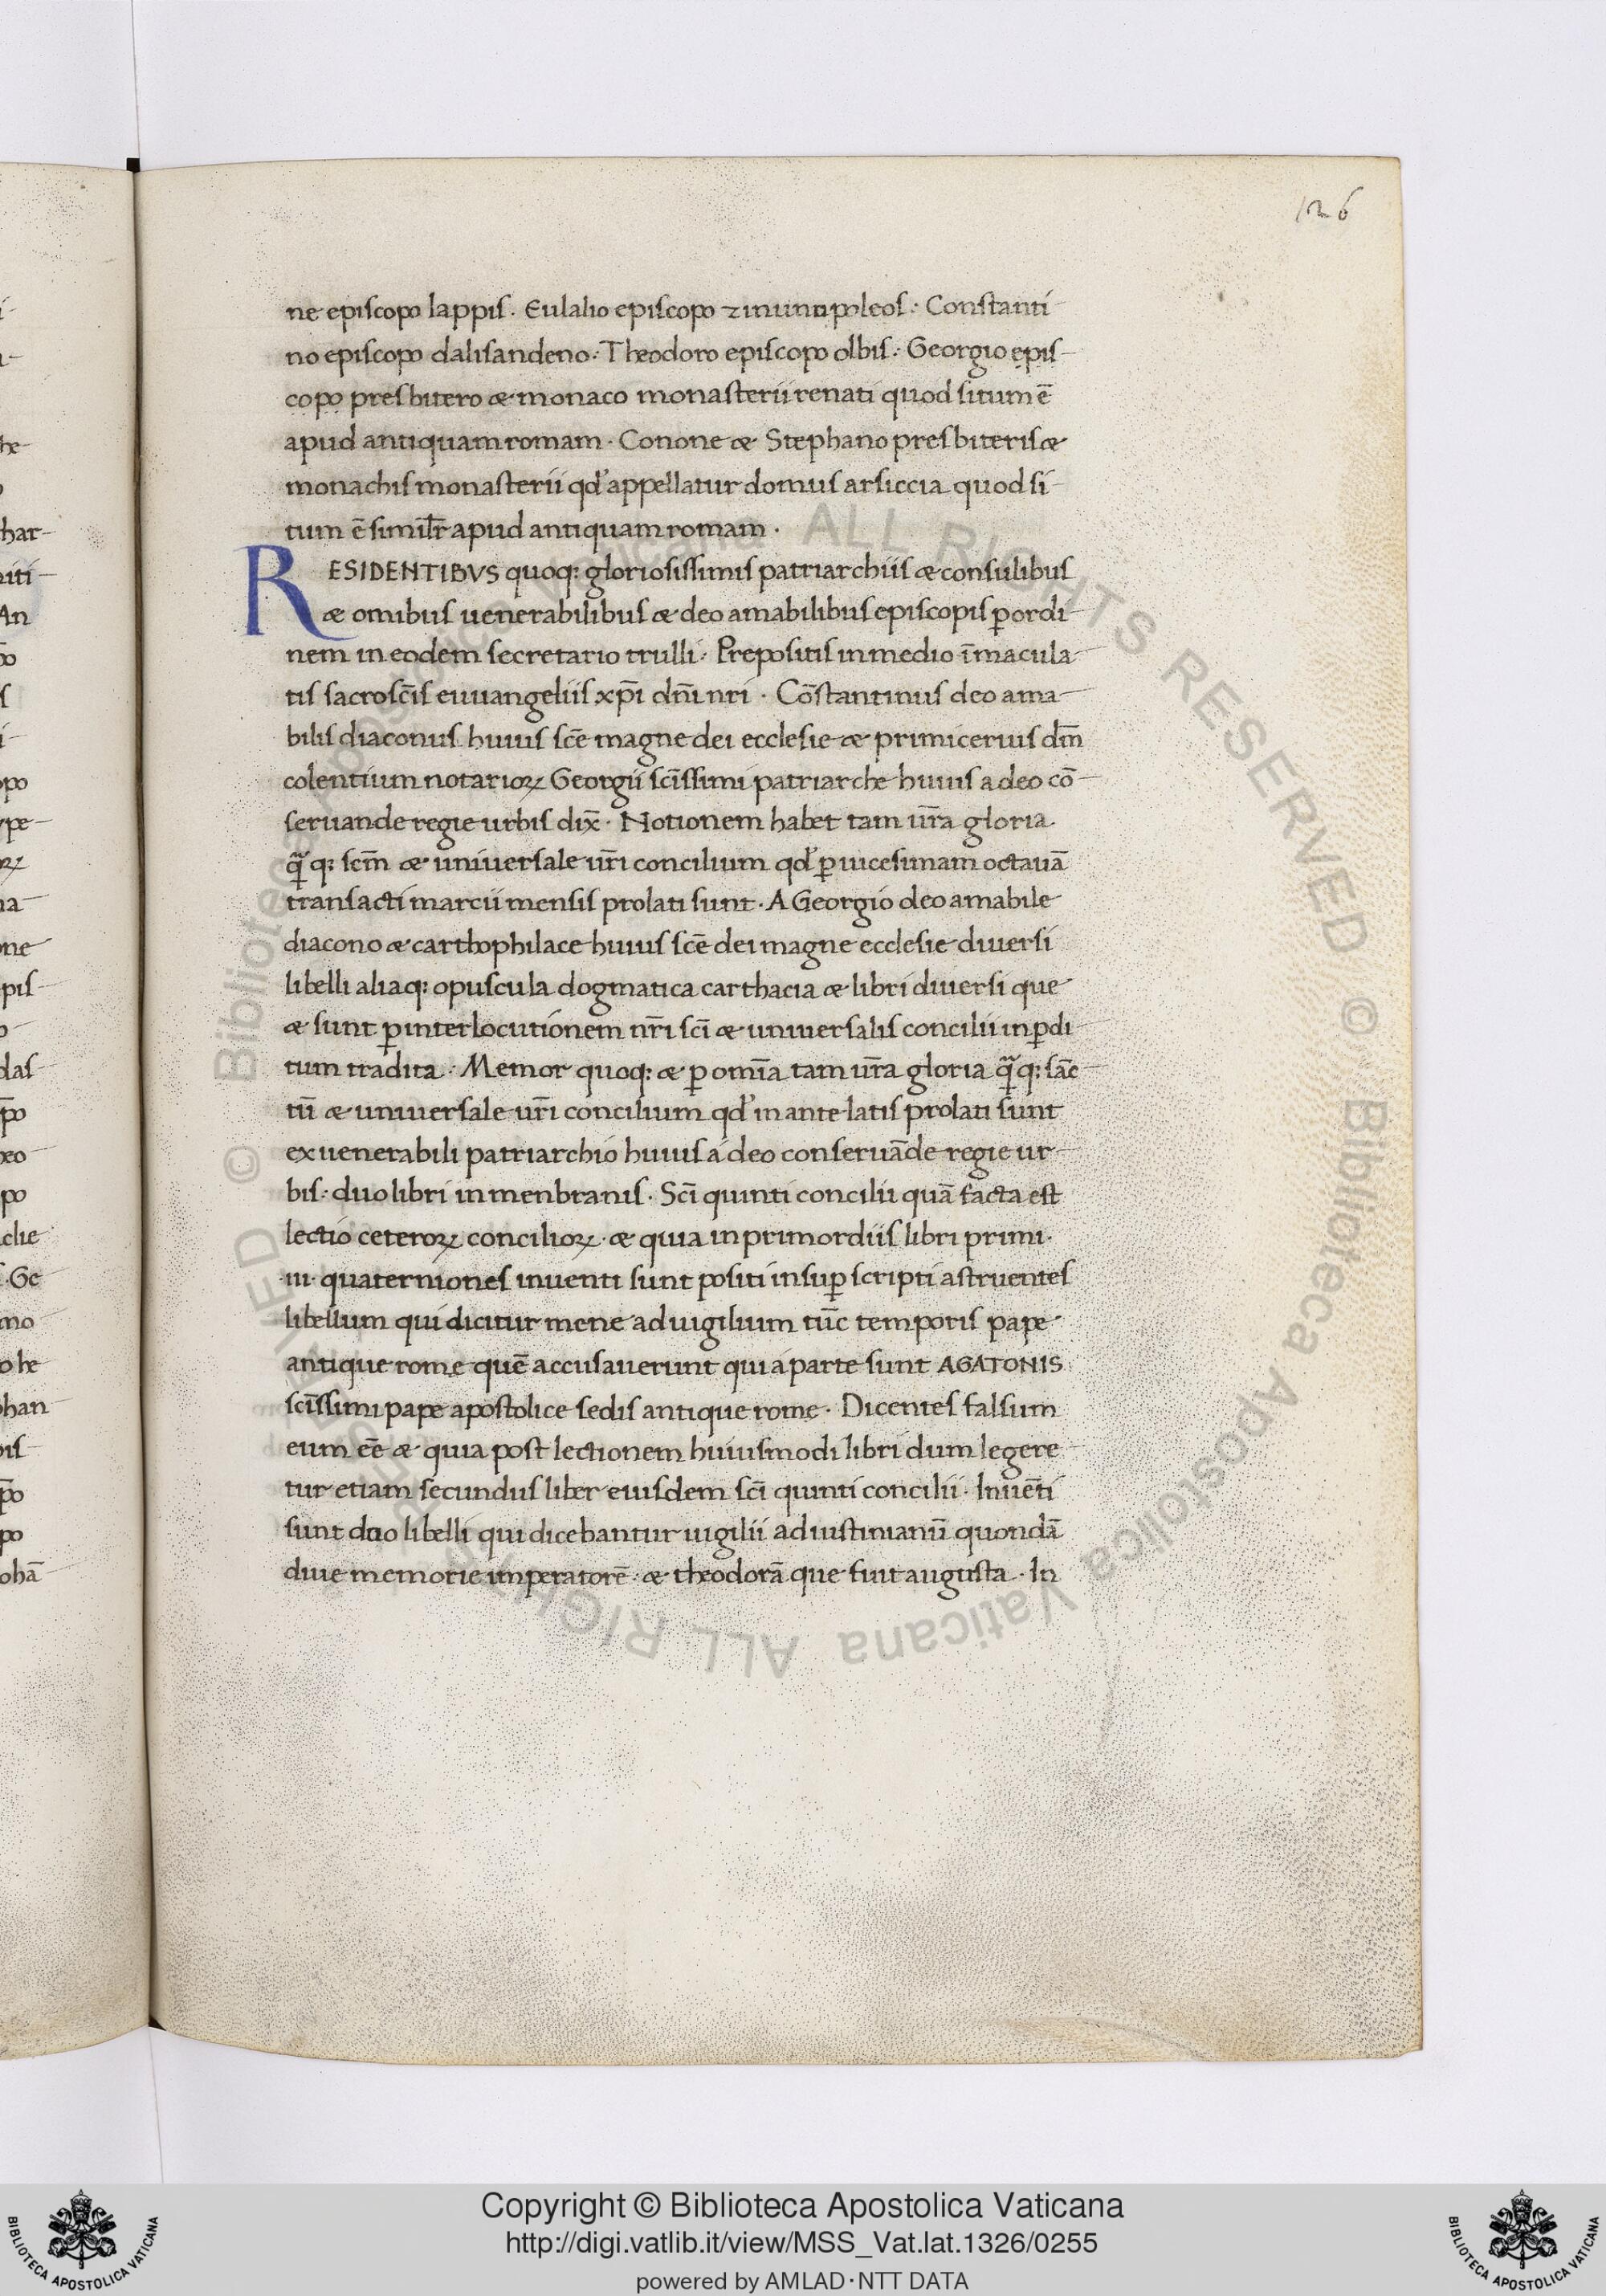 126
ne episcopo lappis. Eulalio episcopo zinunupoleos: Constanti
no episcopo dalisandeno: Theodoro episcopo olbis: Georgio epis-
copo presbitero & monaco monasterii renati quod situm ē
apud antiquam romam. Conone & Stephano presbiteris &
monachis monasterii qd' appellatur domus arsiccia quod si-
tum ē simil̄r apud antiquam romam.
RESIDENTIBVS quoq: gloriosissimis patriarchiis & consulibus
& omibus uenerabilibus & deo amabilibus episcopis p̄ ordi-
nem in eodem secretario trulli: Prepositis in medio īmacula-
tis sacrosc̄is euuangeliis xp̄i dn̄i nr̄i. Cōstantinus deo ama-
bilis diaconus huius sc̄e magne dei ecclesie & primicerius dm̄
colentium notarioꝝ Georgii sc̄issimi patriarche huius a deo cō-
seruande regie urbis dix̄. Notionem habet tam ur̄a gloria
q̄q: sc̄m & uniuersale ur̄i concilium qd' p̄ uicesimam octauā
transacti marcii mensis prolati sunt. A Georgio deo amabile
diacono & carthophilace huius sc̄e dei magne ecclesie diuersi
libelli aliaq: opuscula dogmatica carthacia & libri diuersi que
& sunt p̄ interlocutionem nr̄i sc̄i & uniuersalis concilii in p̄di-
tum tradita: Memor quoq: & p̄ omīa tam ur̄a gloria q̄q: sāc-
tū & uniuersale ur̄i concilium qd' in ante latis prolati sunt
ex uenerabili patriarchio huius a deo conseruāde regie ur-
bis: duo libri in menbranis. Sc̄i quinti concilii quā facta est
lectio ceteroꝝ concilioꝝ. & quia in primordiis libri primi.
.iii. quaterniones inuenti sunt positi insup̄ scripti astruentes
libellum qui dicitur mene ad uigilium tūc temporis pape
antique rome quē accusauerunt qui a parte sunt AGATONIS
sc̄issimi pape apostolice sedis antique rome. Dicentes falsum
eum ēe & quia post lectionem huiusmodi libri dum legere-
tur etiam secundus liber eiusdem sc̄i quinti concilii. Inuēti
sunt duo libelli qui dicebantur uigilii ad iustinianū quondā
diue memorie imperatorē: & theodorā que fuit augusta. In
Copyright © Biblioteca Apostolica Vaticana
http://digi.vatlib.it/view/MSS_Vat.lat.1326/0255
powered by AMLAD·NTT DATA
BIBLIOTECA APOSTOLICA VATICANA
BIBLIOTECA APOSTOLICA VATICANA
© Biblioteca Apostolica Vaticana ALL RIGHTS RESERVED © Biblioteca Apostolica Vaticana ALL RIGHTS RESERVED